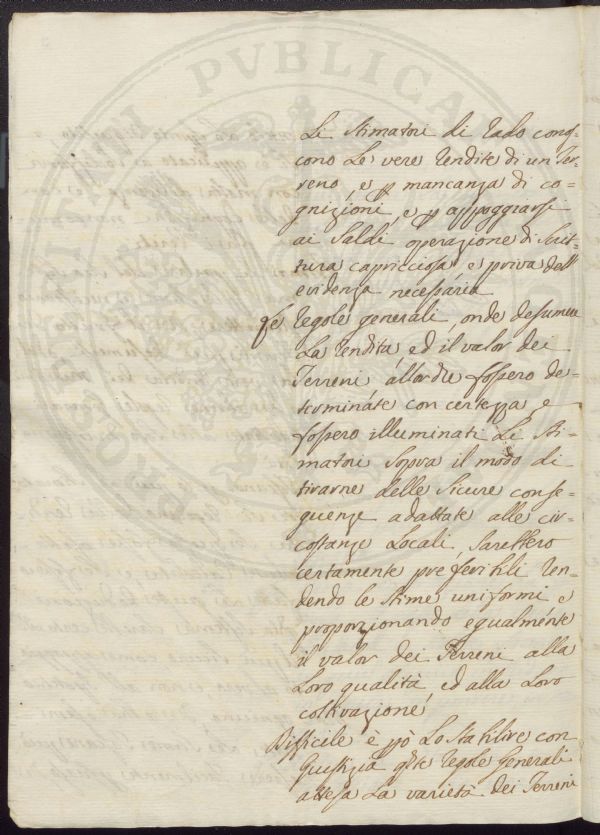 Li Stimatori di rado conos-
cono le vere rendite di un Ter-
reno, e p mancanza di co-
gnizioni, e p appoggiarsi
ai Saldi operazione di Scrit-
tura capricciosa, e priva dell'
evidenza necessaria
Le regole generali, onde desumere
La rendita, ed il valor dei
Terreni allorche fossero de-
terminate con certezza e
fossero illuminati Li Sti-
matori sopra il modo di
tirarne delle sicure conse-
guenze adattate alle cir-
costanze Locali, sarebbero
certamente preferibili ren-
dendo le stime uniformi e
proporzionando egualmente
il valor dei Terreni alla
Loro qualità, ed alla Loro
coltivazione
Difficile è pò Lo stabilire con
Giustizia qste regole Generali
attesa La varietà dei Terreni